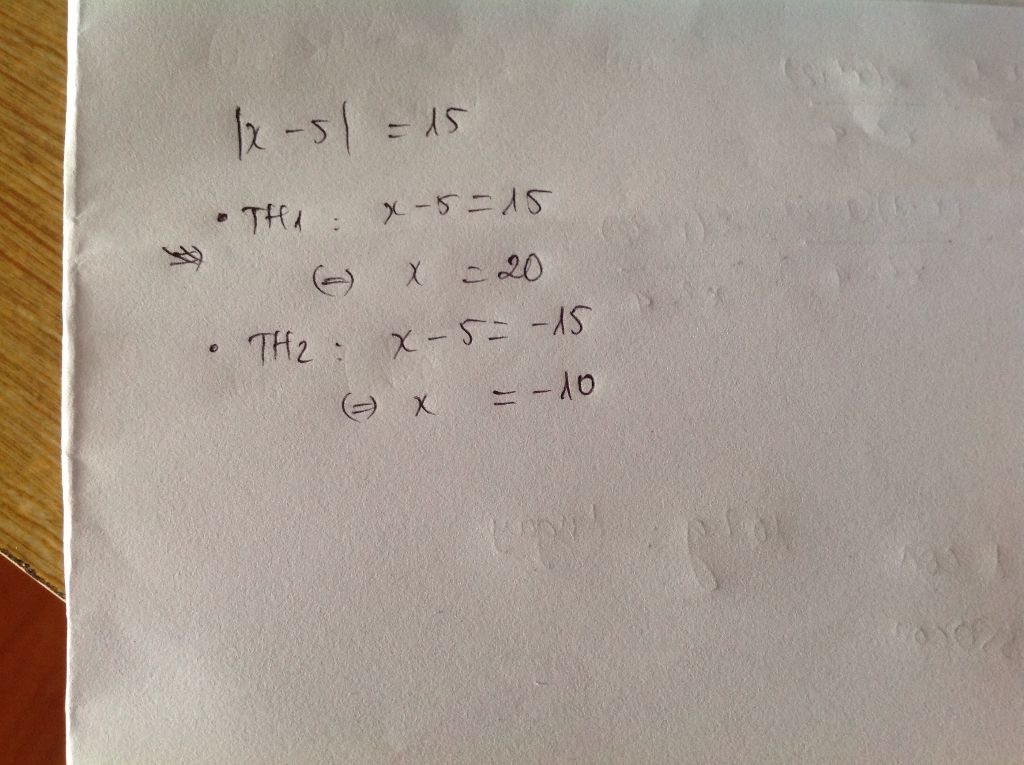 |x - 5| = 15
• TH1 : x - 5 = 15
(=) x = 20
• TH2 : x - 5 = -15
(=) x = -10